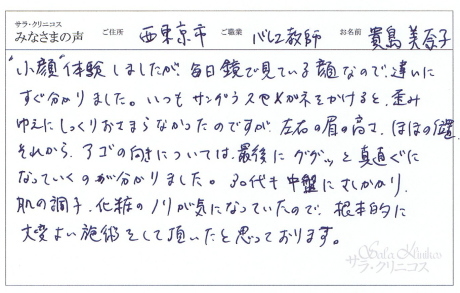 サラ・クリニコス
みなさまの声 ご住所 西東京市 ご職業 バレエ教師 お名前 貴島 美奈子
"小顔"体験しましたが、毎日鏡で見ている顔なので、違いに
すぐ分かりました。いつもサングラスやメガネをかけると、歪み
ゆえにしっくりおさまらなかったのですが、左右の眉の高さ、ほほの位置、
それから、アゴの向きについては、最後にググッと真直ぐに
なっていくのが分かりました。30代も中盤にさしかかり、
肌の調子、化粧のノリが気になっていたので、根本的に
大変よい施術をして頂いたと思っております。
Sala Klinikos
サラ・クリニコス